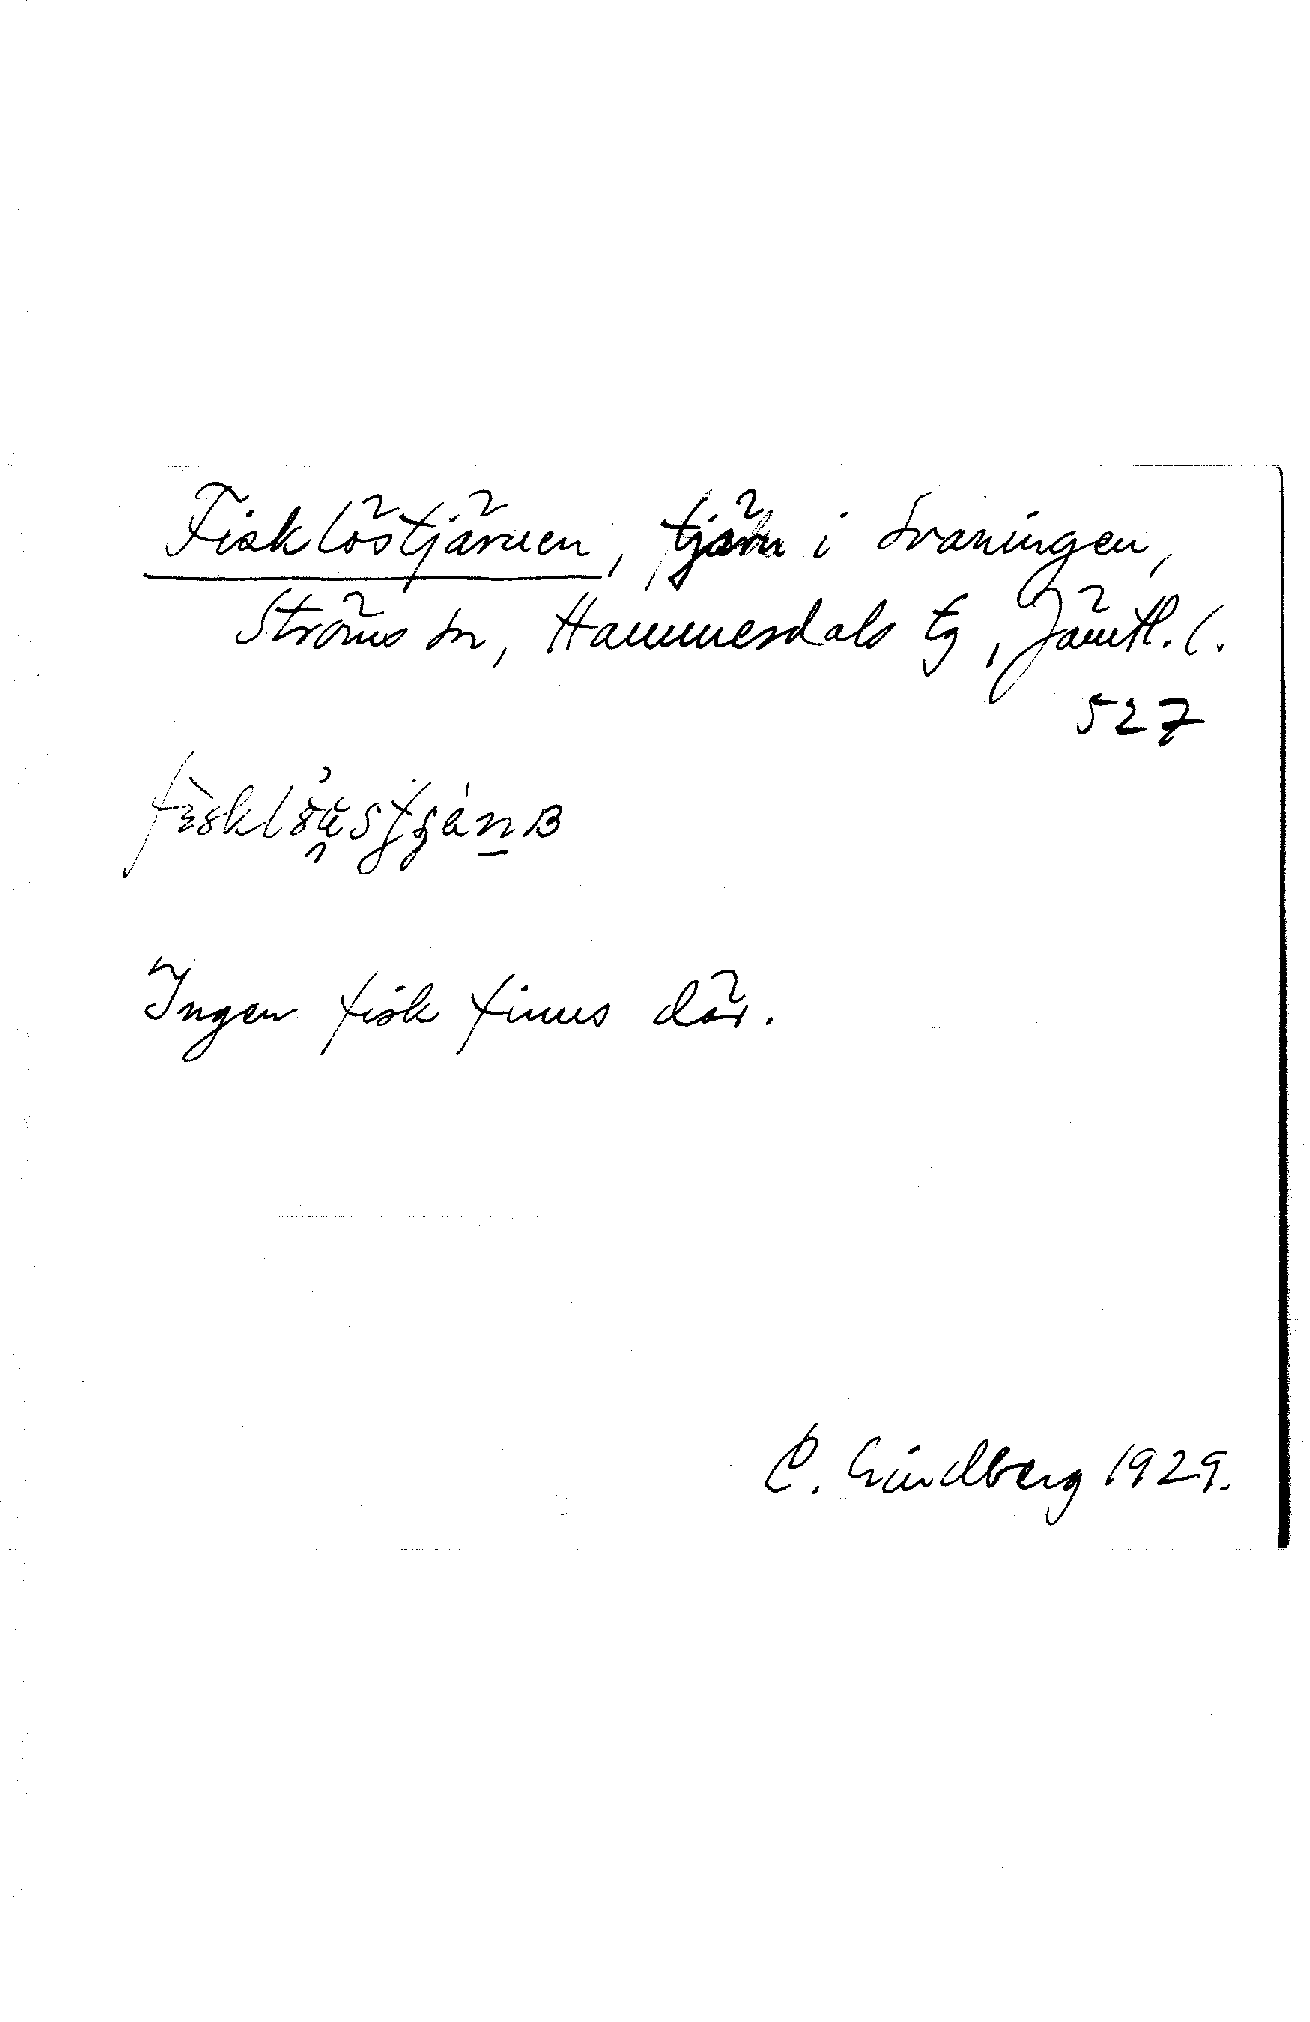 Fisklöstjärnen, tjärn i Svaningen,
Ströms sn, Hammerdals tg, Jämtl. l.
527
Ingen fisk finns där.
C. Lindberg 1929.